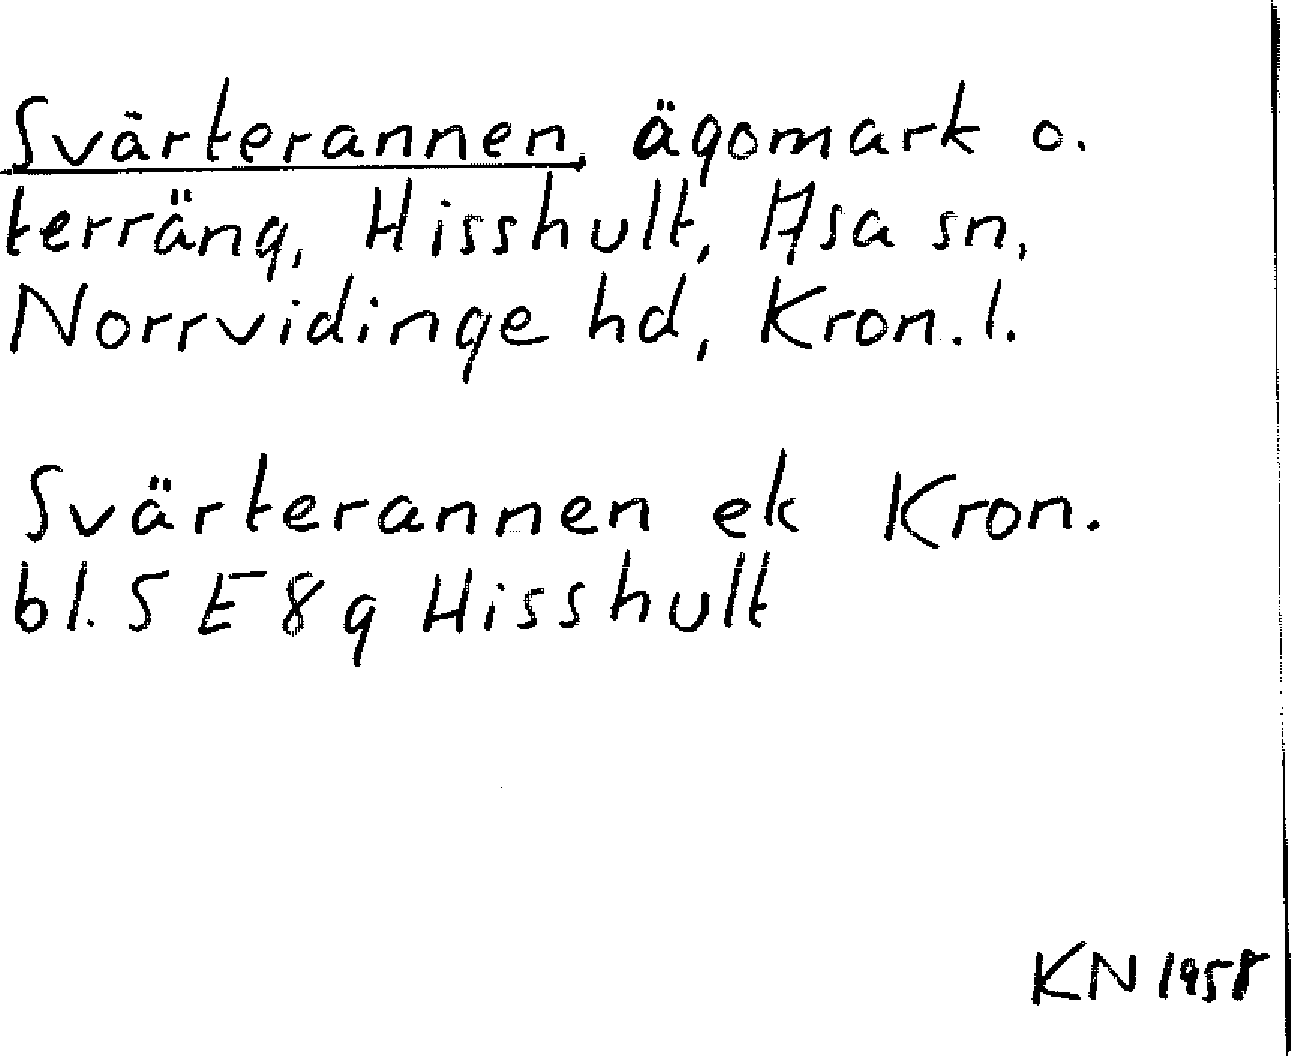 Svärterannen, ägomark o.
terräng, Hisshult, Asa sn,
Norrvidinge hd, Kron. l.
Svärterannen ek Kron.
bl. 5 E 8 g Hisshult
KN 1958